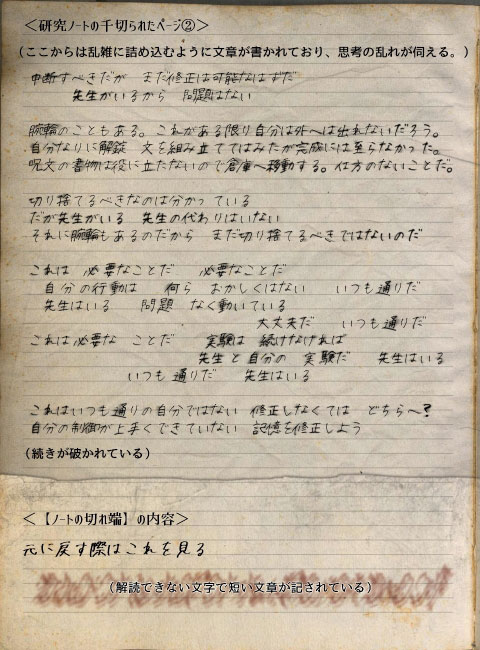 ＜研究ノートの千切られたページ②＞
（ここからは乱雑に詰め込むように文章が書かれており、思考の乱れが伺える。）
中断すべきだが まだ修正は可能なはずだ
先生がいるから 問題はない
腕輪のこともある。これがある限り自分は外へは出れないだろう。
自分なりに解錠 文を組み立ててはみたが完成には至らなかった。
呪文の書物は役に立たないので倉庫へ移動する。仕方のないことだ。
切り捨てるべきなのは分かっている
だが先生がいる 先生の代わりはいない
それに腕輪もあるのだから まだ切り捨てるべきではないのだ
これは 必要なことだ 必要なことだ
自分の行動は 何ら おかしくはない いつも通りだ
先生はいる 問題 なく動いている
大丈夫だ いつも通りだ
これは必要な ことだ 実験は 続けなければ
先生と自分の 実験だ 先生はいる
いつも通りだ 先生はいる
これはいつも通りの自分ではない 修正しなくては どちらへ?
自分の制御が上手くできていない 記憶を修正しよう
（続きが破かれている）
＜【ノートの切れ端】の内容＞
元に戻す際はこれを見る
（解読できない文字で短い文章が記されている）